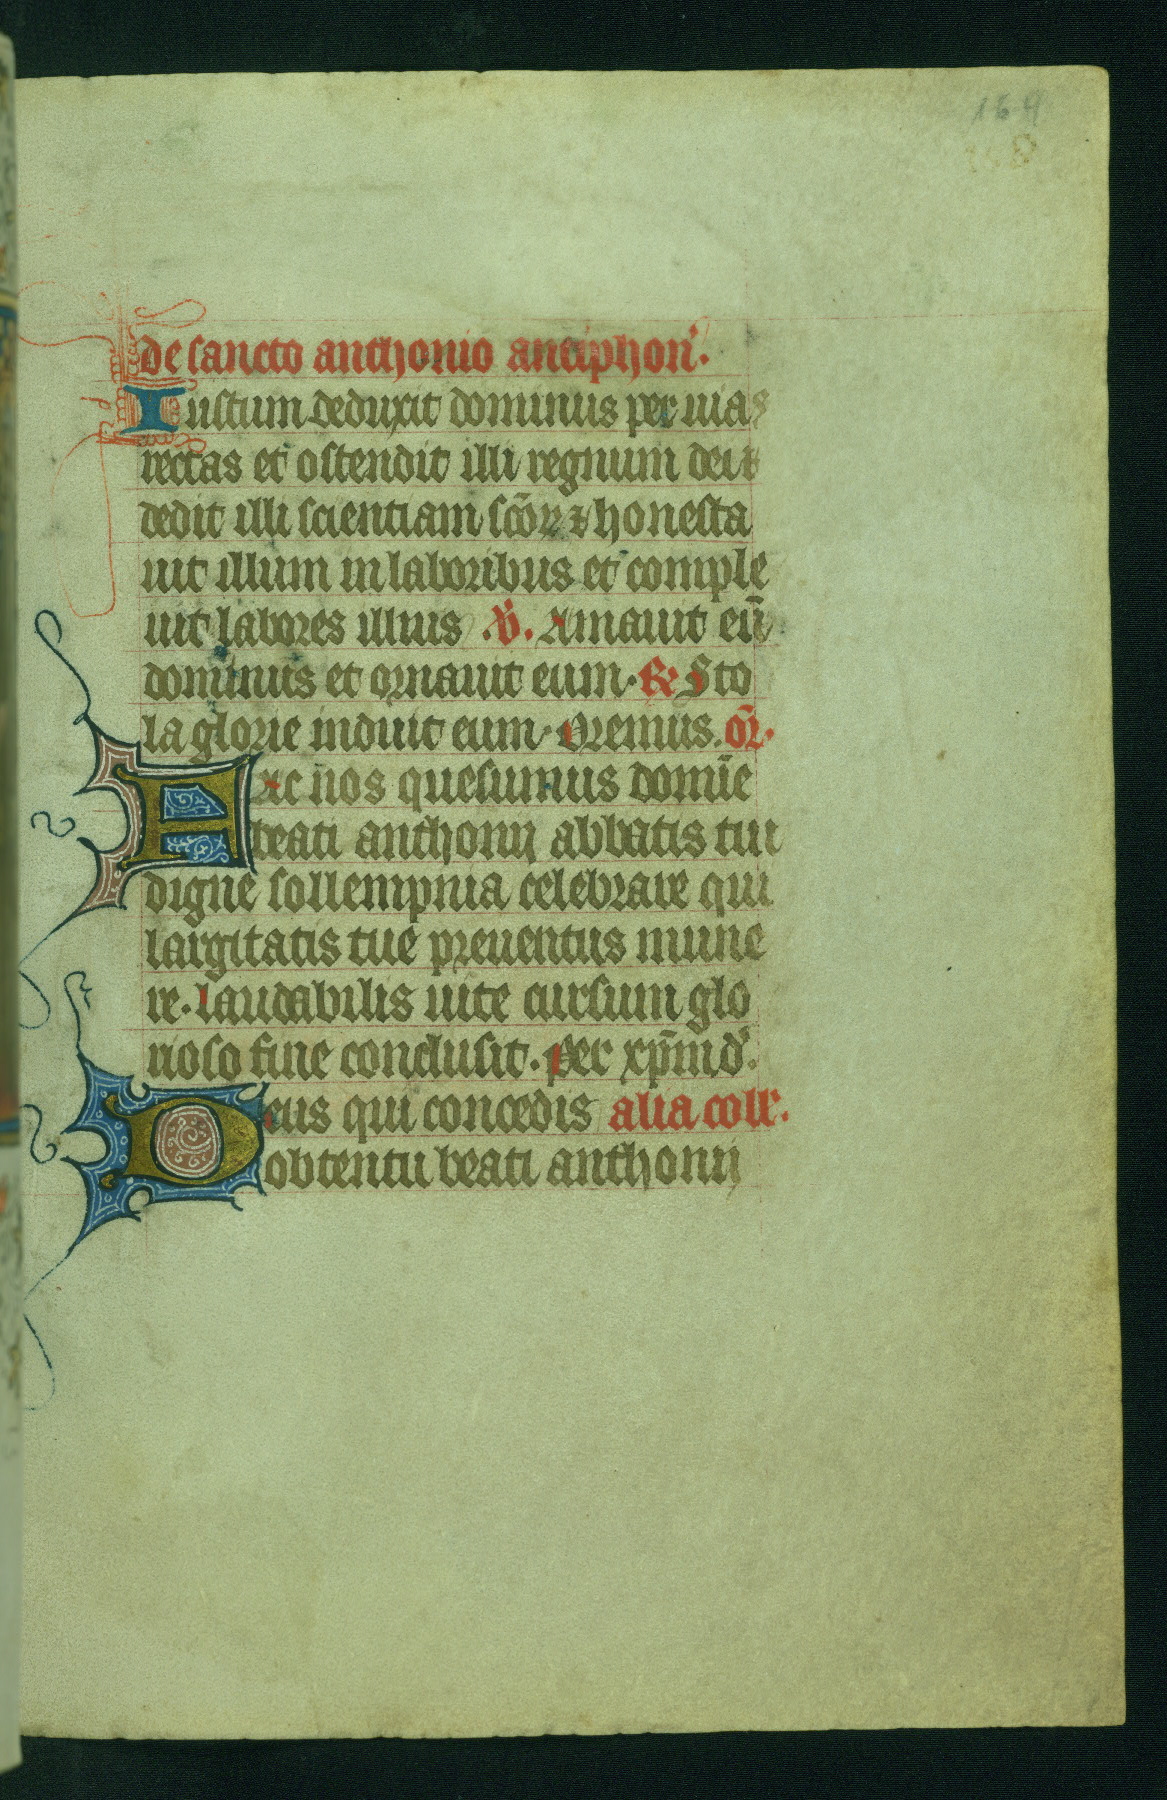 159
de sancto anthonio antiphon̄.
Iustum deduxit dominus per uias
rectas et ostendit illi regnum dei ⁊
dedit illi scientiam sc̄oꝝ ⁊ honesta
uit illum in laboribus et comple
uit labores illius .V̄. Amauit eū
dominus et ornauit eum. ℟ Sto
la glorie induit eum. Oremus. or̄.
Fac nos quesumus domīe
beati anthonij abbatis tui
digne sollempnia celebrare qui
largitatis tue preuentus mune
re. laudabilis uite cursum glo
rioso fine conclusit. Per xp̄m d'.
Deus qui concedis alia coll'.
obtentu beati anthonij